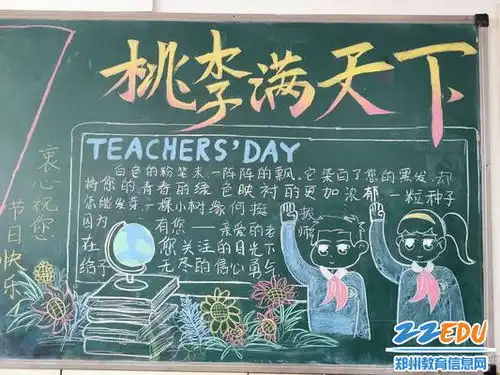 桃李满天下
衷心祝您
节日快乐
TEACHERS' DAY
白色的粉笔末一阵阵的飘。它染白了您的黑发,却
将您的青春的绿色映衬的更加浓郁 一粒种子
您能发芽,一棵小树缘何挺拔
因为 有您——亲爱的老师
在 您关注的目光下
给予 无尽的信心勇气
ZZEDU
郑州教育信息网